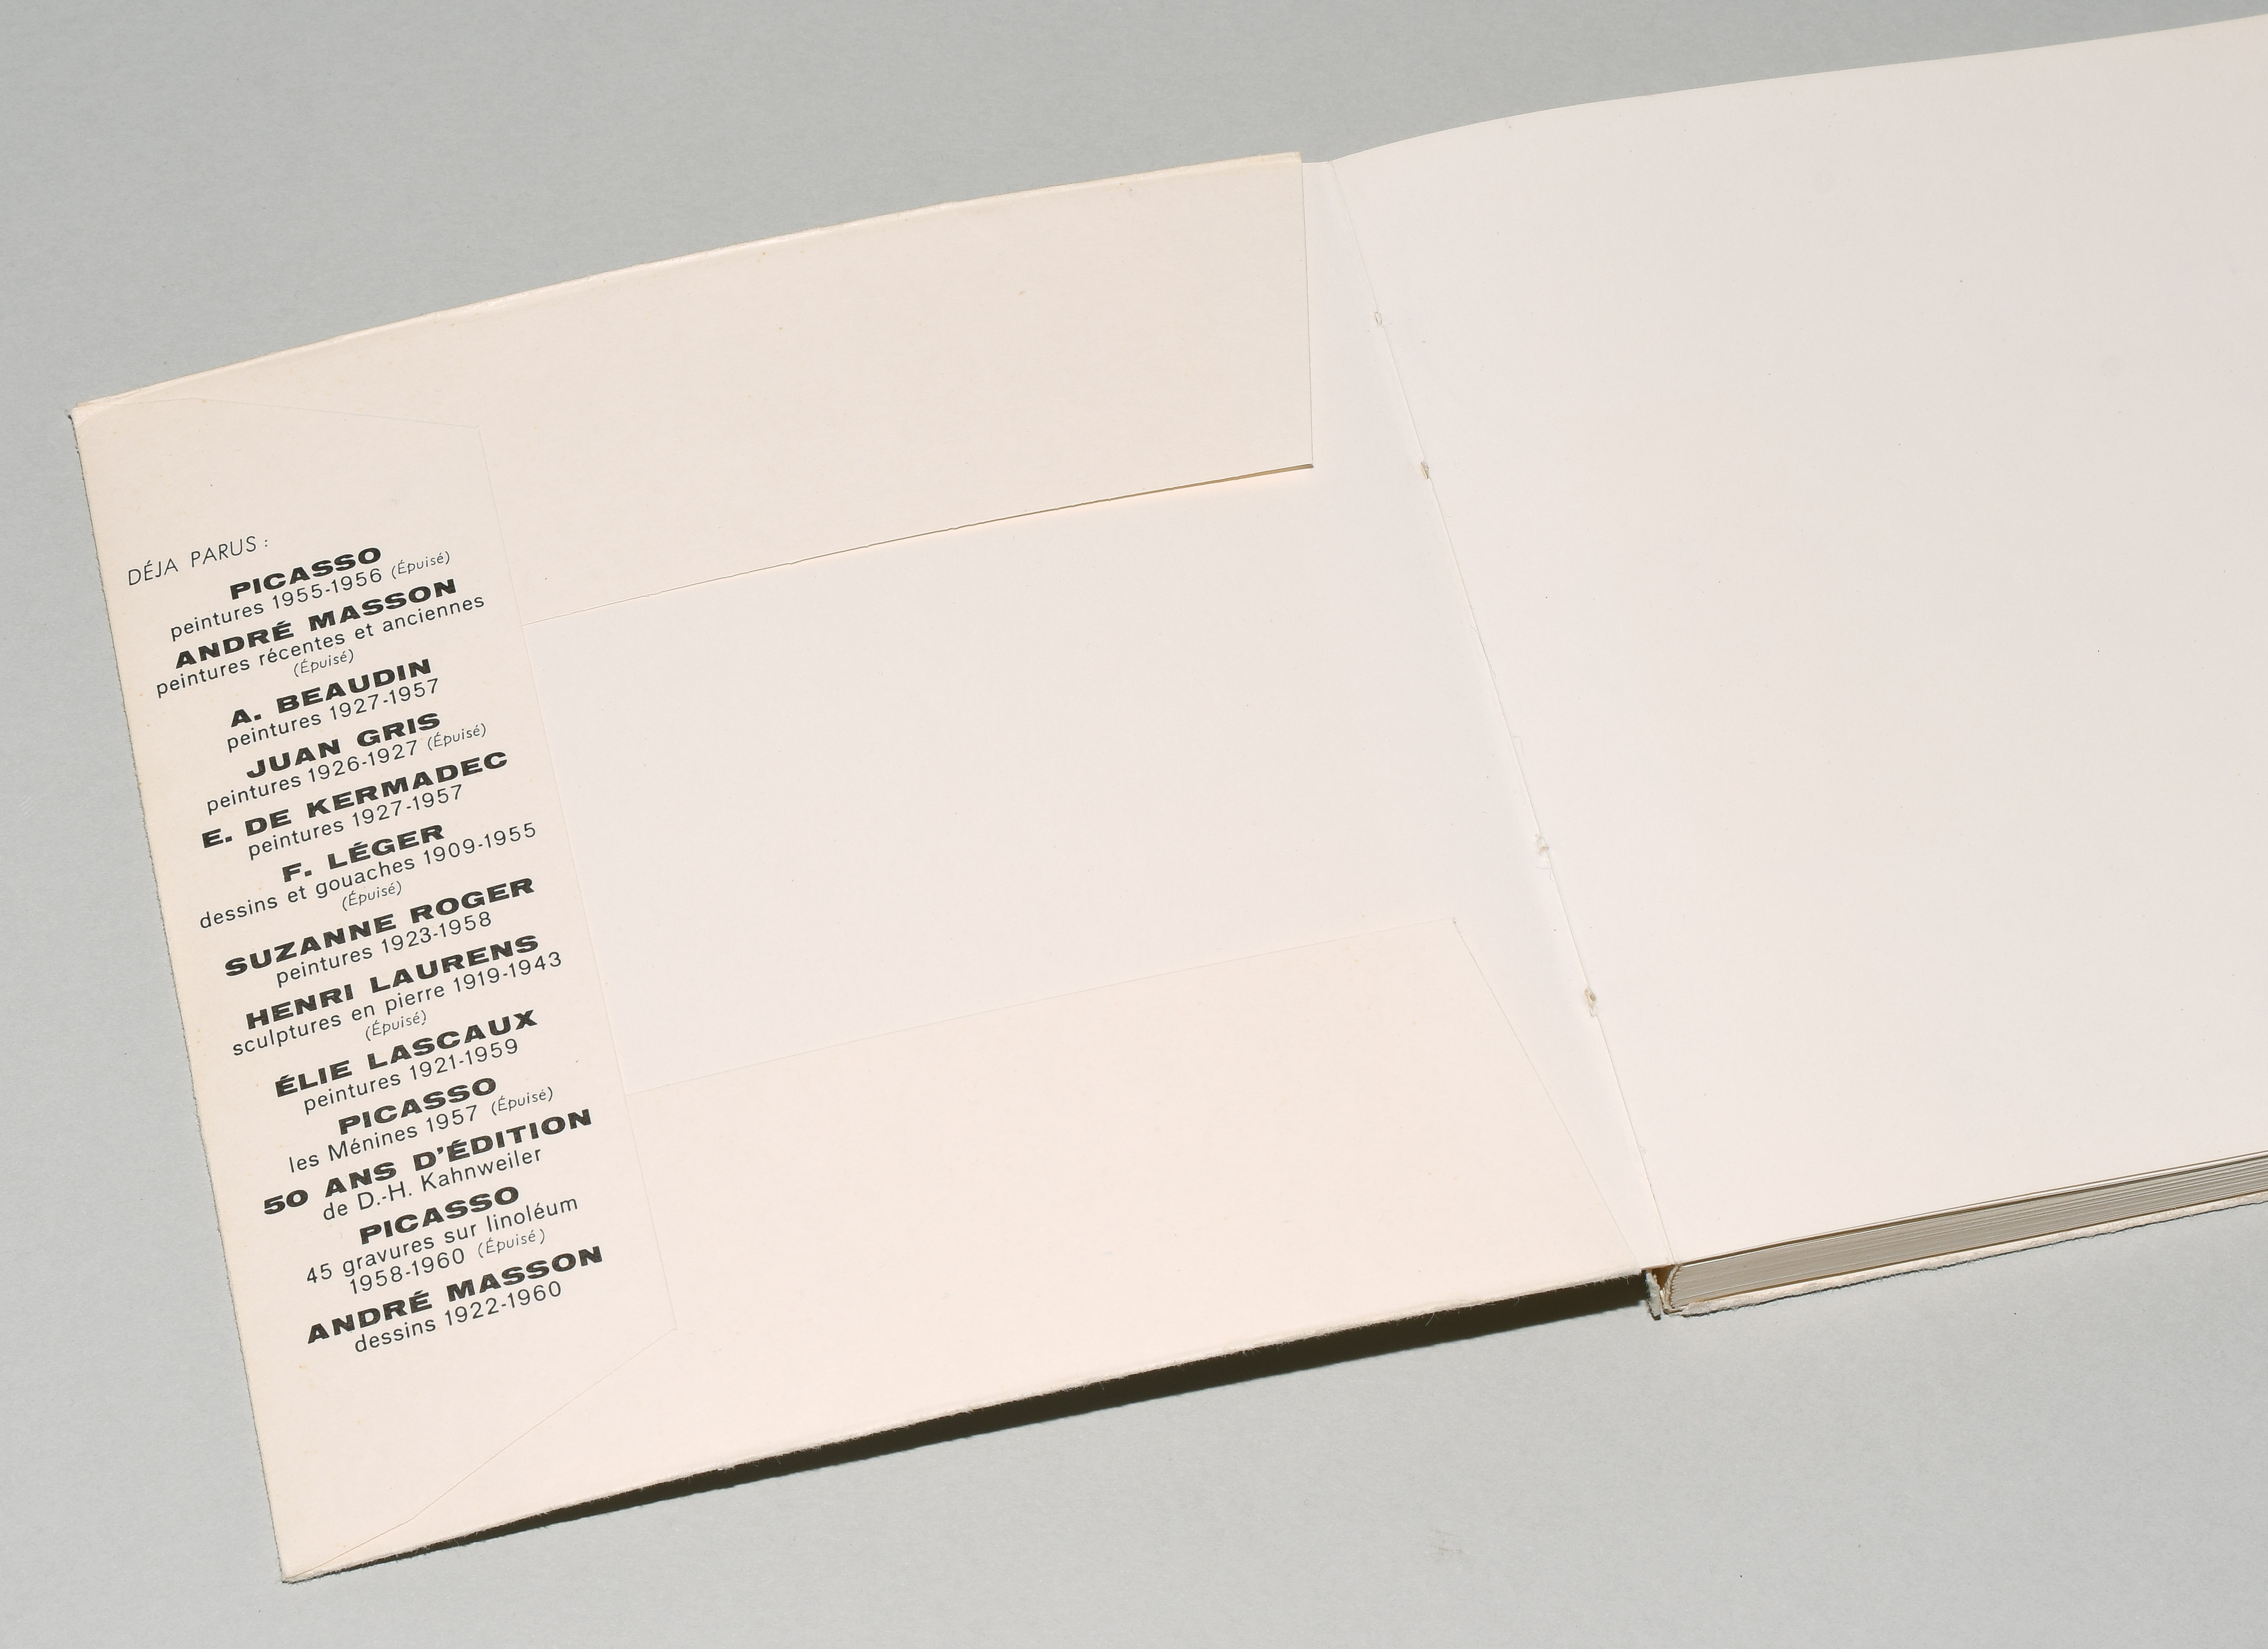 DÉJA PARUS :
PICASSO
peintures 1955-1956 (Épuisé)
ANDRÉ MASSON
peintures récentes et anciennes
(Épuisé)
A. BEAUDIN
peintures 1927-1957
JUAN GRIS
peintures 1926-1927 (Épuisé)
E. DE KERMADEC
peintures 1927-1957
F. LÉGER
dessins et gouaches 1909-1955
(Épuisé)
SUZANNE ROGER
peintures 1923-1958
HENRI LAURENS
sculptures en pierre 1919-1943
(Épuisé)
ÉLIE LASCAUX
peintures 1921-1959
PICASSO
les Ménines 1957 (Épuisé)
50 ANS D'ÉDITION
de D.-H. Kahnweiler
PICASSO
45 gravures sur linoléum
1958-1960 (Épuisé)
ANDRÉ MASSON
dessins 1922-1960